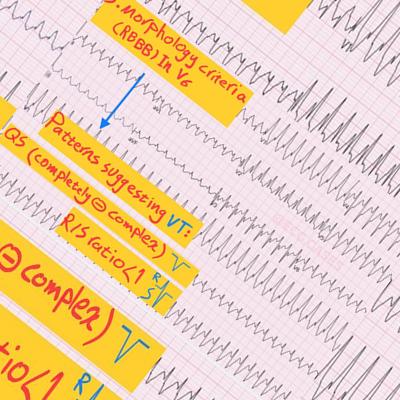 morphology crieria
(RBBB) In V6
Patterns suggesting VT:
QS (completely ⊖ complex)
R/S ratio<1 R
S
⊖ complex)
tio<1 R/